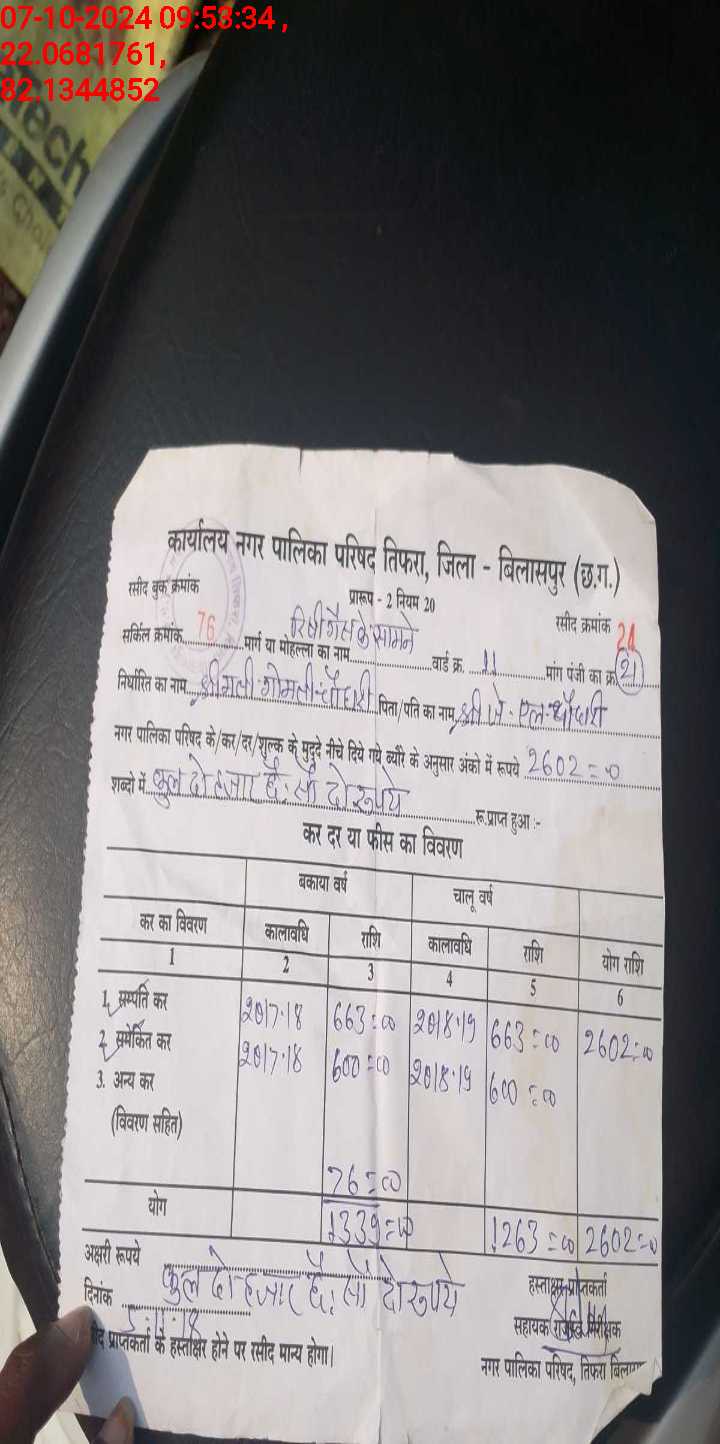 07-10-2024 09:58:34 ,
22.0681761,
82.1344852
ech
कार्यालय नगर पालिका परिषद तिफरा, जिला - बिलासपुर (छ.ग.)
रसीद बुक क्रमांक
प्रारूप - 2 नियम 20
रसीद क्रमांक 21
सर्किल क्रमांक 76 मार्ग या मोहल्ला का नाम रिषी गैस के सामने वार्ड क्र. 11 मांग पंजी का क्र 21
निर्धारित का नाम श्रीमती गोमती चौधरी पिता/पति का नाम श्री जे. एल. चौधरी
नगर पालिका परिषद के/कर/दर/शुल्क के मुद्दे नीचे दिये गये ब्यौरे के अनुसार अंको में रूपये 2602=0
शब्दो में कुल दो हजार छै: सौ दो रूपये रू. प्राप्त हुआ :-
कर दर या फीस का विवरण
बकाया वर्ष चालू वर्ष
कर का विवरण कालावधि राशि कालावधि राशि योग राशि
1 2 3 4 5 6
1. सम्पति कर 2017-18 663=00 2018-19 663=00 2602=00
2. समेकित कर 2017-18 600=00 2018-19 600=00
3. अन्य कर
(विवरण सहित)
76=00
योग 1339=00 1263=00 2602=0
अक्षरी रूपये कुल दो हजार छै: सौ दो रूपये
हस्ताक्षर प्राप्तकर्ता
दिनांक 5-11-18
सहायक राजस्व निरीक्षक
प्राप्तकर्ता के हस्ताक्षर होने पर रसीद मान्य होगा।
नगर पालिका परिषद, तिफरा